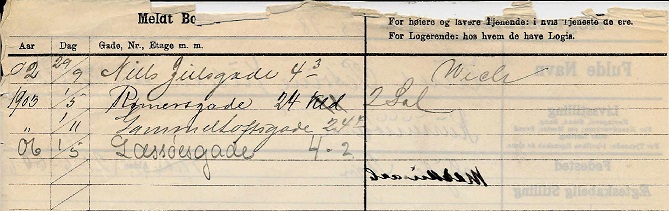 Meldt Bo
For høiere og lavere Tjenende: i hvis Tjeneste de ere.
For Logerende: hos hvem de have Logis.
Aar Dag Gade, Nr., Etage m. m.
02 29/9 Niels Juelsgade 4 3 Wich
1903 1/5 Rømersgade 24 2 Sal
" 1/11 Gammeltoftsgade 24
06 1/5 Læssøesgade 4-2
Fulde Navn
Livsstilling
Fødested
Ægteskabelig Stilling